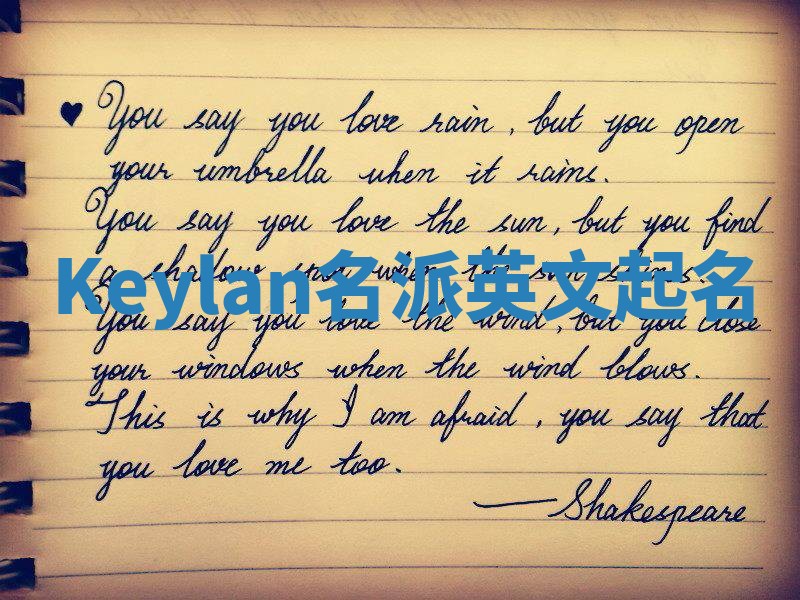 You say you love rain, but you open
your umbrella when it rains.
You say you love the sun, but you find
a shadow spot when the sun shines.
Keylan名派英文起名
You say you love the wind, but you close
your windows when the wind blows.
This is why I am afraid, you say that
you love me too.
—Shakespeare